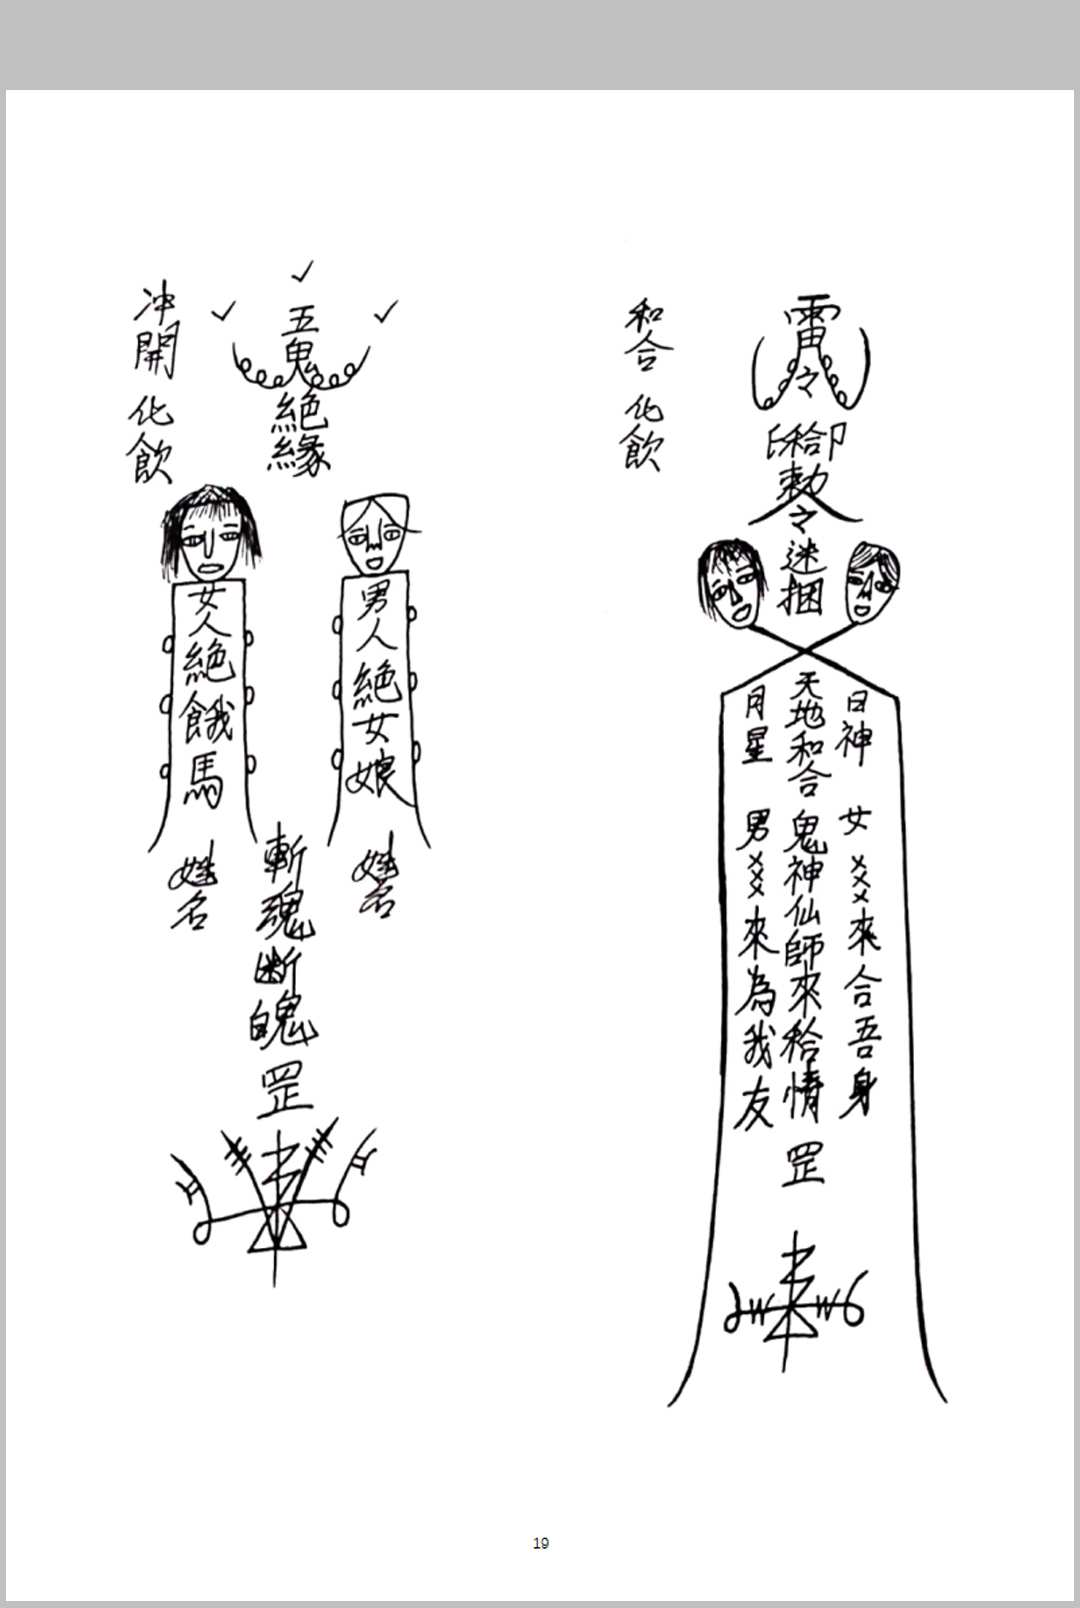 和合 化飲
雷令
和合
敕令
迷捆
日神 女 㐅㐅㐅來合吾身
天地和合鬼神仙師來袷情 罡
月星 男㐅㐅㐅來為我友
五鬼絕緣
冲開 化飲
男人絕女娘
姓名
女人絕餓馬
姓名
斬魂断魄罡
19